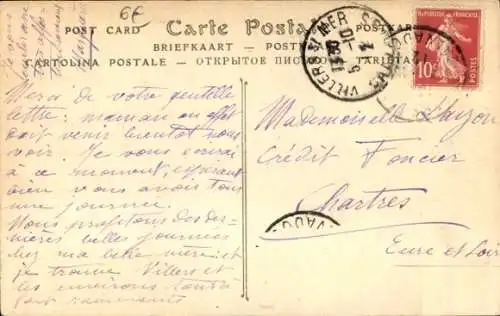 6E
POST CARD
Carte Postale
BRIEFKAART
CARTOLINA POSTALE — ОТКРЫТОЕ
TARJETA
VILLERS S MER
CALVADOS
RÉPUBLIQUE FRANÇAISE
10c
POSTES
Merci de votre gentille
lettre : maman en effet
doit venir bientôt nous
voir. Je vous écrirai
à ce moment, espérant
bien vous avoir tous
une journée.
Nous profitons des der-
nières belles journées
chez ma belle mère et
je trouve Villers et
les environs tout à
fait ravissants
Mademoiselle
Crédit Foncier
Chartres
Eure et Loir